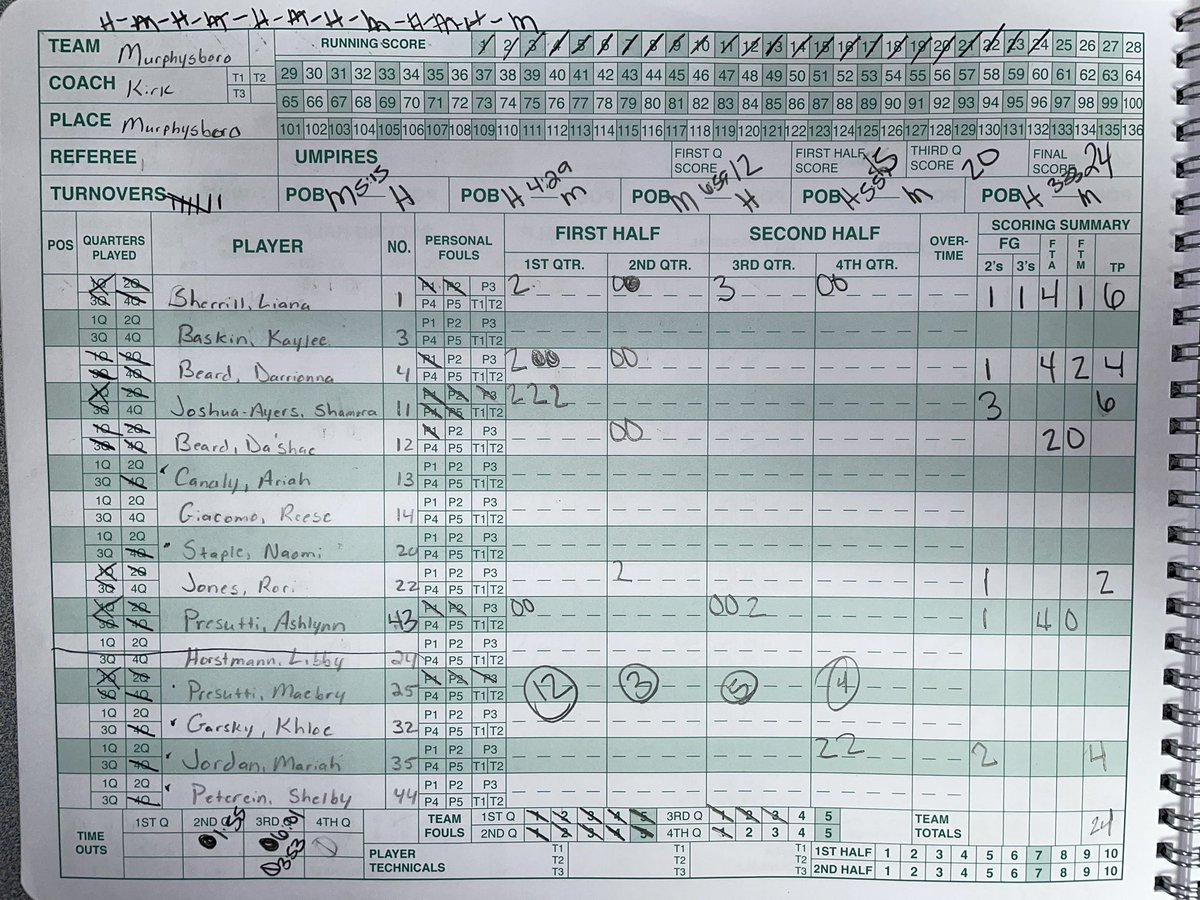 H-M-H-M-H-M-H-M-H-M-H-M
TEAM Murphysboro RUNNING SCORE 1 2 3 4 5 6 7 8 9 10 11 12 13 14 15 16 17 18 19 20 21 22 23 24 25 26 27 28
COACH Kirk T1 T2 T3 29 30 31 32 33 34 35 36 37 38 39 40 41 42 43 44 45 46 47 48 49 50 51 52 53 54 55 56 57 58 59 60 61 62 63 64
65 66 67 68 69 70 71 72 73 74 75 76 77 78 79 80 81 82 83 84 85 86 87 88 89 90 91 92 93 94 95 96 97 98 99 100
PLACE Murphysboro 101 102 103 104 105 106 107 108 109 110 111 112 113 114 115 116 117 118 119 120 121 122 123 124 125 126 127 128 129 130 131 132 133 134 135 136
REFEREE UMPIRES FIRST Q SCORE 12 FIRST HALF SCORE 15 THIRD Q SCORE 20 FINAL SCORE 24
TURNOVERS POB M 5:15 H POB H 4:29 m POB M H POB H m POB H m
POS QUARTERS PLAYED PLAYER NO. PERSONAL FOULS FIRST HALF SECOND HALF OVER-TIME SCORING SUMMARY
1ST QTR. 2ND QTR. 3RD QTR. 4TH QTR. FG 2's 3's FTA FTM TP
1Q 2Q 3Q 4Q Sherrill, Liana 1 P1 P2 P3 P4 P5 T1 T2 2 00 3 00 1 1 4 1 6
1Q 2Q 3Q 4Q Baskin, Kaylee 3 P1 P2 P3 P4 P5 T1 T2
1Q 2Q 3Q 4Q Beard, Darrionna 4 P1 P2 P3 P4 P5 T1 T2 2 00 00 1 4 2 4
1Q 2Q 3Q 4Q Joshua-Ayers, Shamora 11 P1 P2 P3 P4 P5 T1 T2 2 2 2 3 6
1Q 2Q 3Q 4Q Beard, Da'shae 12 P1 P2 P3 P4 P5 T1 T2 00 2 0
1Q 2Q 3Q 4Q Canaly, Ariah 13 P1 P2 P3 P4 P5 T1 T2
1Q 2Q 3Q 4Q Giacomo, Reese 14 P1 P2 P3 P4 P5 T1 T2
1Q 2Q 3Q 4Q Staple, Naomi 20 P1 P2 P3 P4 P5 T1 T2
1Q 2Q 3Q 4Q Jones, Rori 22 P1 P2 P3 P4 P5 T1 T2 2 1 2
1Q 2Q 3Q 4Q Presutti, Ashlynn 43 P1 P2 P3 P4 P5 T1 T2 00 00 2 1 4 0
1Q 2Q 3Q 4Q Horstmann, Libby 24 P1 P2 P3 P4 P5 T1 T2
1Q 2Q 3Q 4Q Presutti, Maebry 25 P1 P2 P3 P4 P5 T1 T2 12 3 5 4
1Q 2Q 3Q 4Q Garsky, Khloe 32 P1 P2 P3 P4 P5 T1 T2
1Q 2Q 3Q 4Q Jordan, Mariah 35 P1 P2 P3 P4 P5 T1 T2 2 2 2 4
1Q 2Q 3Q 4Q Peterein, Shelby 44 P1 P2 P3 P4 P5 T1 T2
TIME OUTS 1ST Q 2ND Q 3RD Q 4TH Q TEAM FOULS 1ST Q 1 2 3 4 5 3RD Q 1 2 3 4 5 TEAM TOTALS 24
1:55 3:53 2ND Q 1 2 3 4 5 4TH Q 1 2 3 4 5
PLAYER TECHNICALS T1 T2 T3 T1 T2 T3 T1 T2 T3 1ST HALF 1 2 3 4 5 6 7 8 9 10
2ND HALF 1 2 3 4 5 6 7 8 9 10